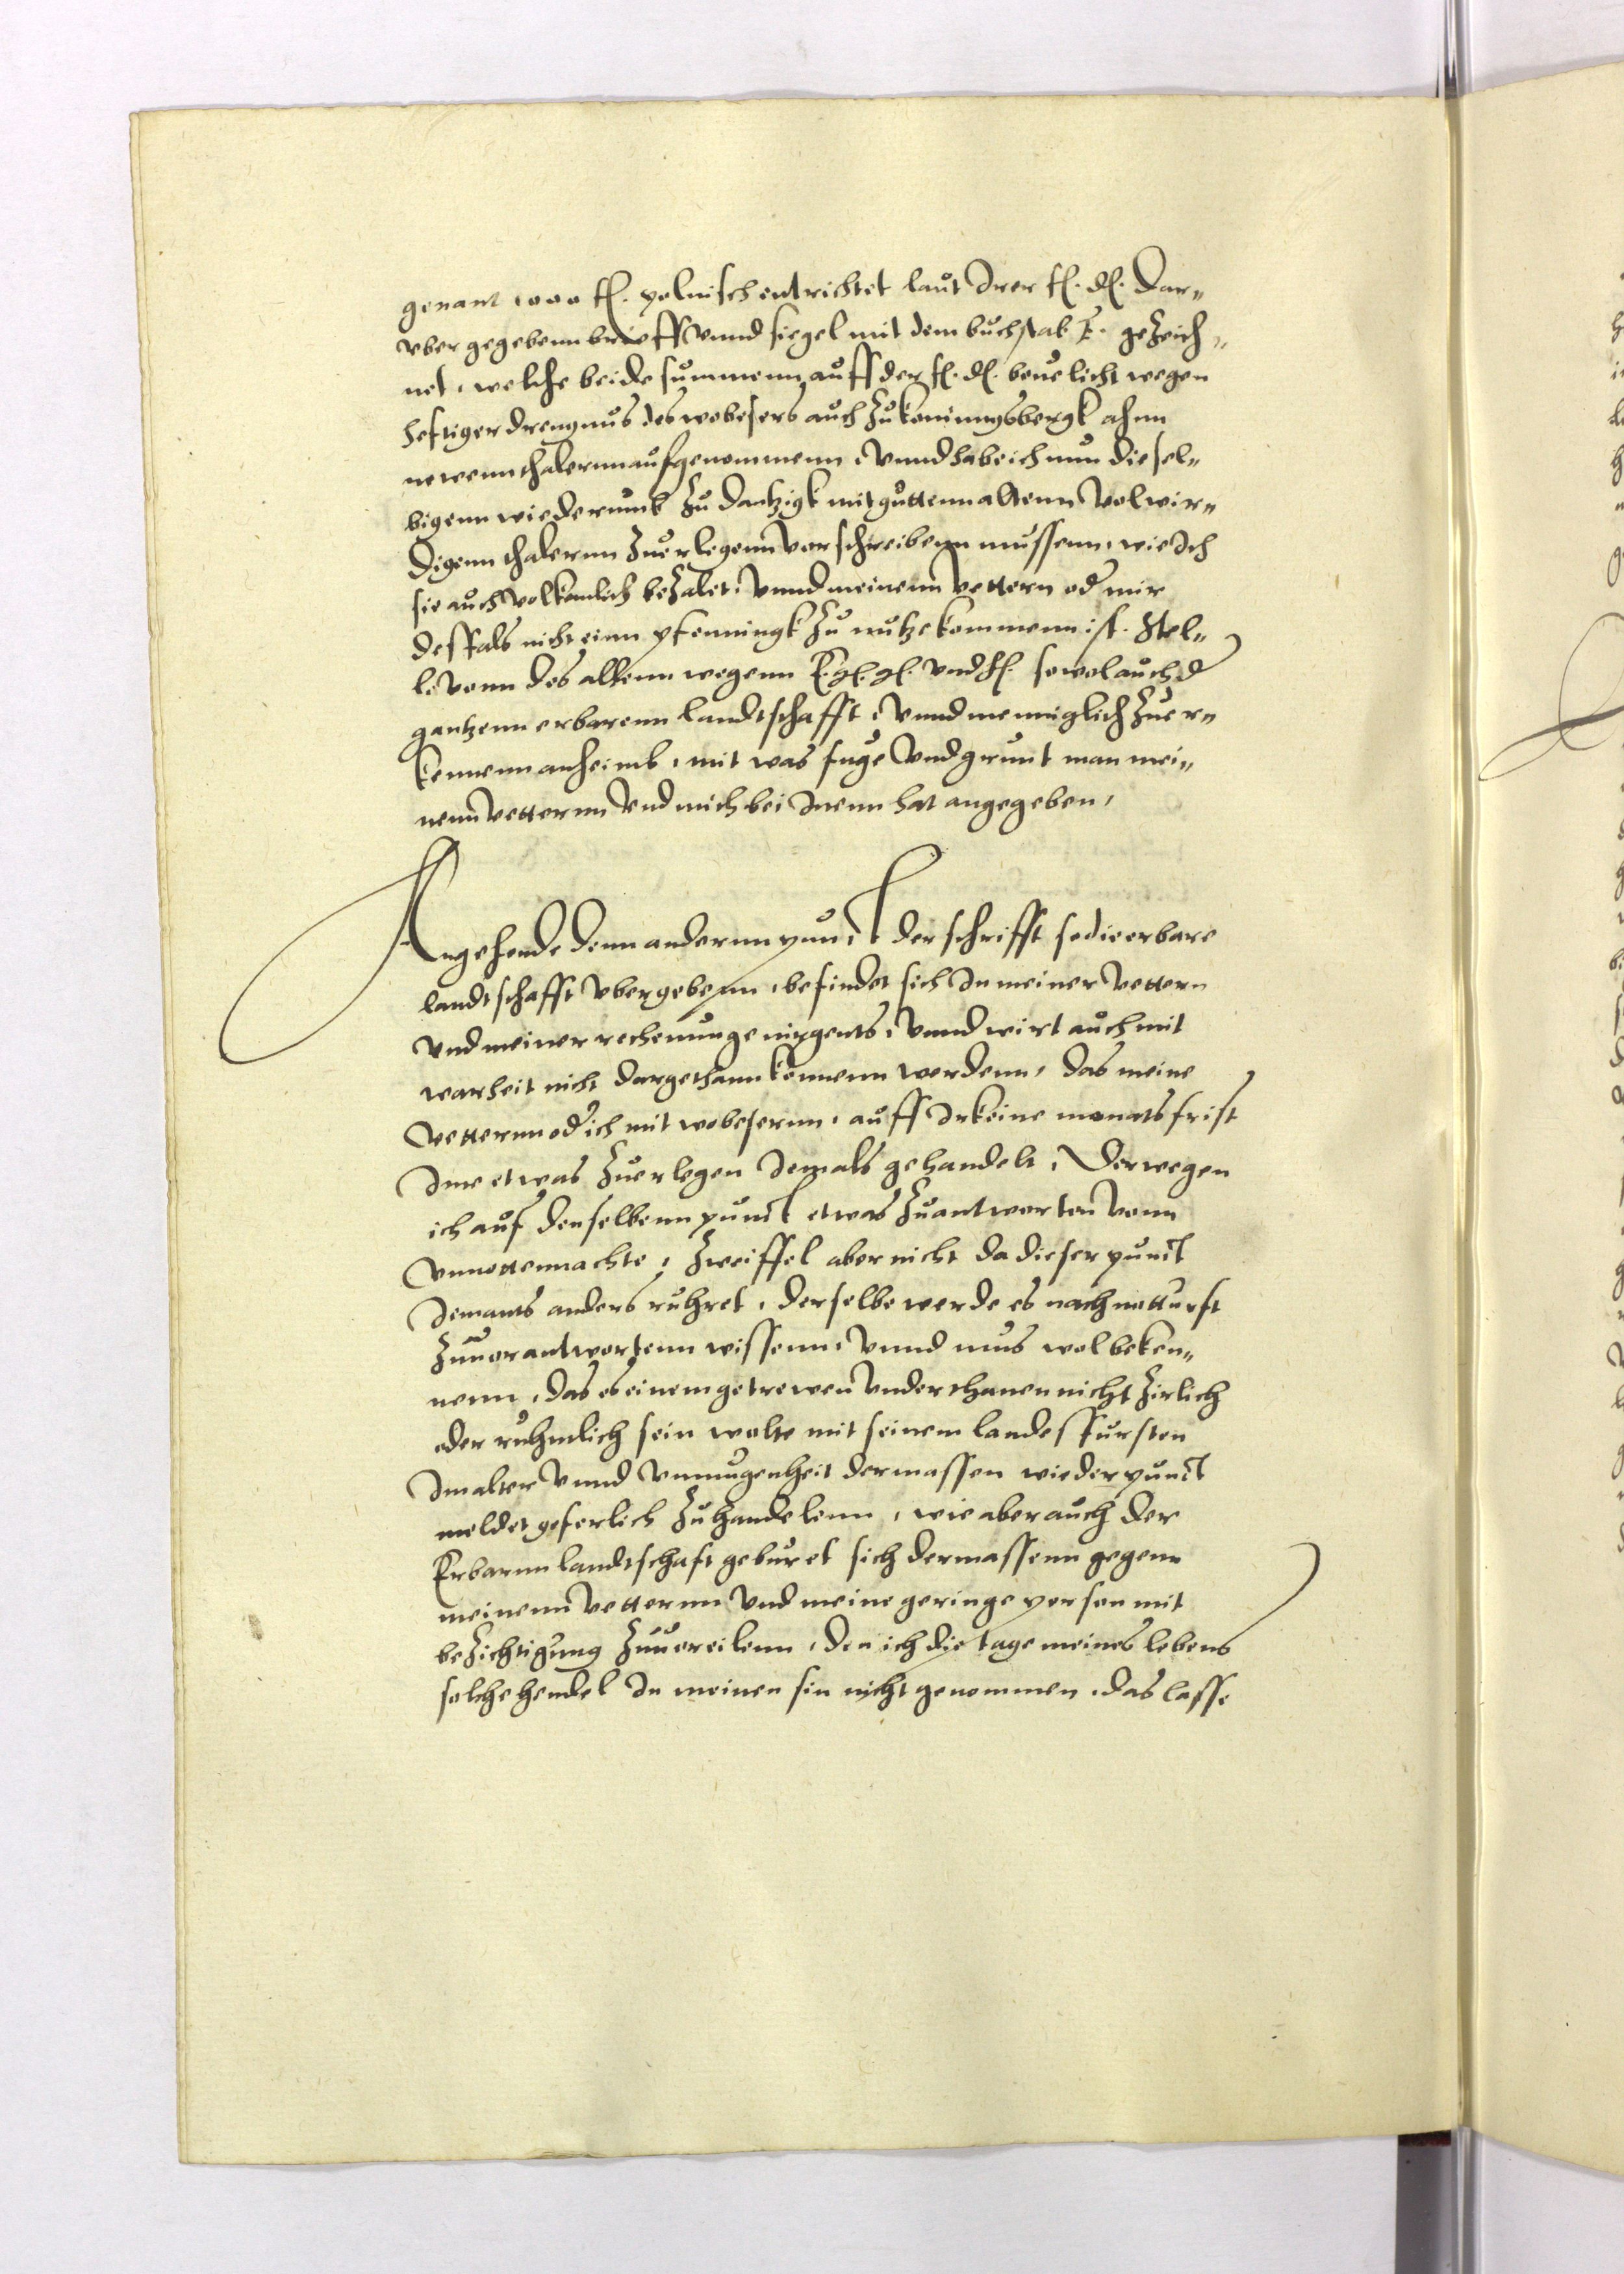 genant 1000 fl. polnisch entrichtet laut Irer fl. dl. dar-
vber gegebenn brieff vnnd siegel mit dem buchstab E. gezeich-
net, welche beide summenn auff der fl. dl. beuelicht wegen
heftiger drengnus des wobesers auch zu konningsbergk ahnn
newenn thalernn aufgenommenn, vnnd habe ich nun diesel-
bigenn wiederumb zu dantzigk mit guttenn altenn volwir-
digenn thalernn zuerlegenn vorschreibenn mussenn, wie Ich
sie auch volkomlich bezalet, vnnd meinenn vettern od mir
desfals nicht einn pfenningk zu nutze kommenn ist. Stel-
le vonn des allenn wegenn E. gl. gl. vnd fl. sowol auch d
gantzenn erbarenn landtschafft, vnnd menniglich zuer-
kennenn anheimb, mit was fuge vnd grunt man mei-
nenn vetternn vnd mich bei Inenn hat angegeben,
Angehende denn andernn punct der schrifft so die erbare
landtschafft vbergebenn, befindet sich In meiner vettern
vnd meiner rechenunge nirgents, vnnd wirt auch mit
warheit nicht dargethann konnenn werdenn, das meine
vetternn od ich mit wobesernn, auff Irkeine monatsfrist
Ime etwas zuerlegen Iemals gehandelt, Derwegen
ich auf denselbenn punct etwas zuantworten vonn
vnnotten achte, zweiffel aber nicht da dieser punct
Iemants anders ruhret, derselbe werde es nach notturft
zuuorantwortenn wissenn, vnnd mus wol beken-
nenn, das es einem getrewen vnderthanen nicht zirlich
oder ruhmlich sein wolte mit seinem landesfursten
Im alter vnnd vnmugenheit dermassen wie der punct
meldet geferlich zuhandelenn, wie aber auch der
Erbarnn landtschaft geburet sich dermassenn gegenn
meinenn vetternn vnd meine geringe person mit
bezichtigung zuuoreilenn, den ich die tage meines lebens
solche hendel In meinen sin nicht genommen, das lasse